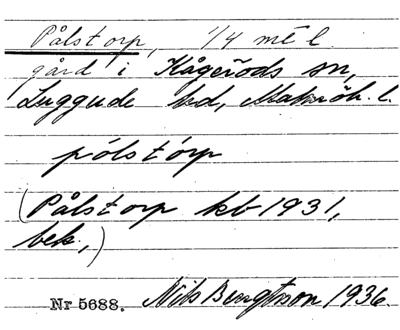 Pålstorp, 1/4 mtl.
gård i Kågeröds sn,
Luggude hd, Malmöh. l.
pólstórp
(Pålstorp kb 1931,
bek.)
Nr 5688. Nils Bengtsson 1936.